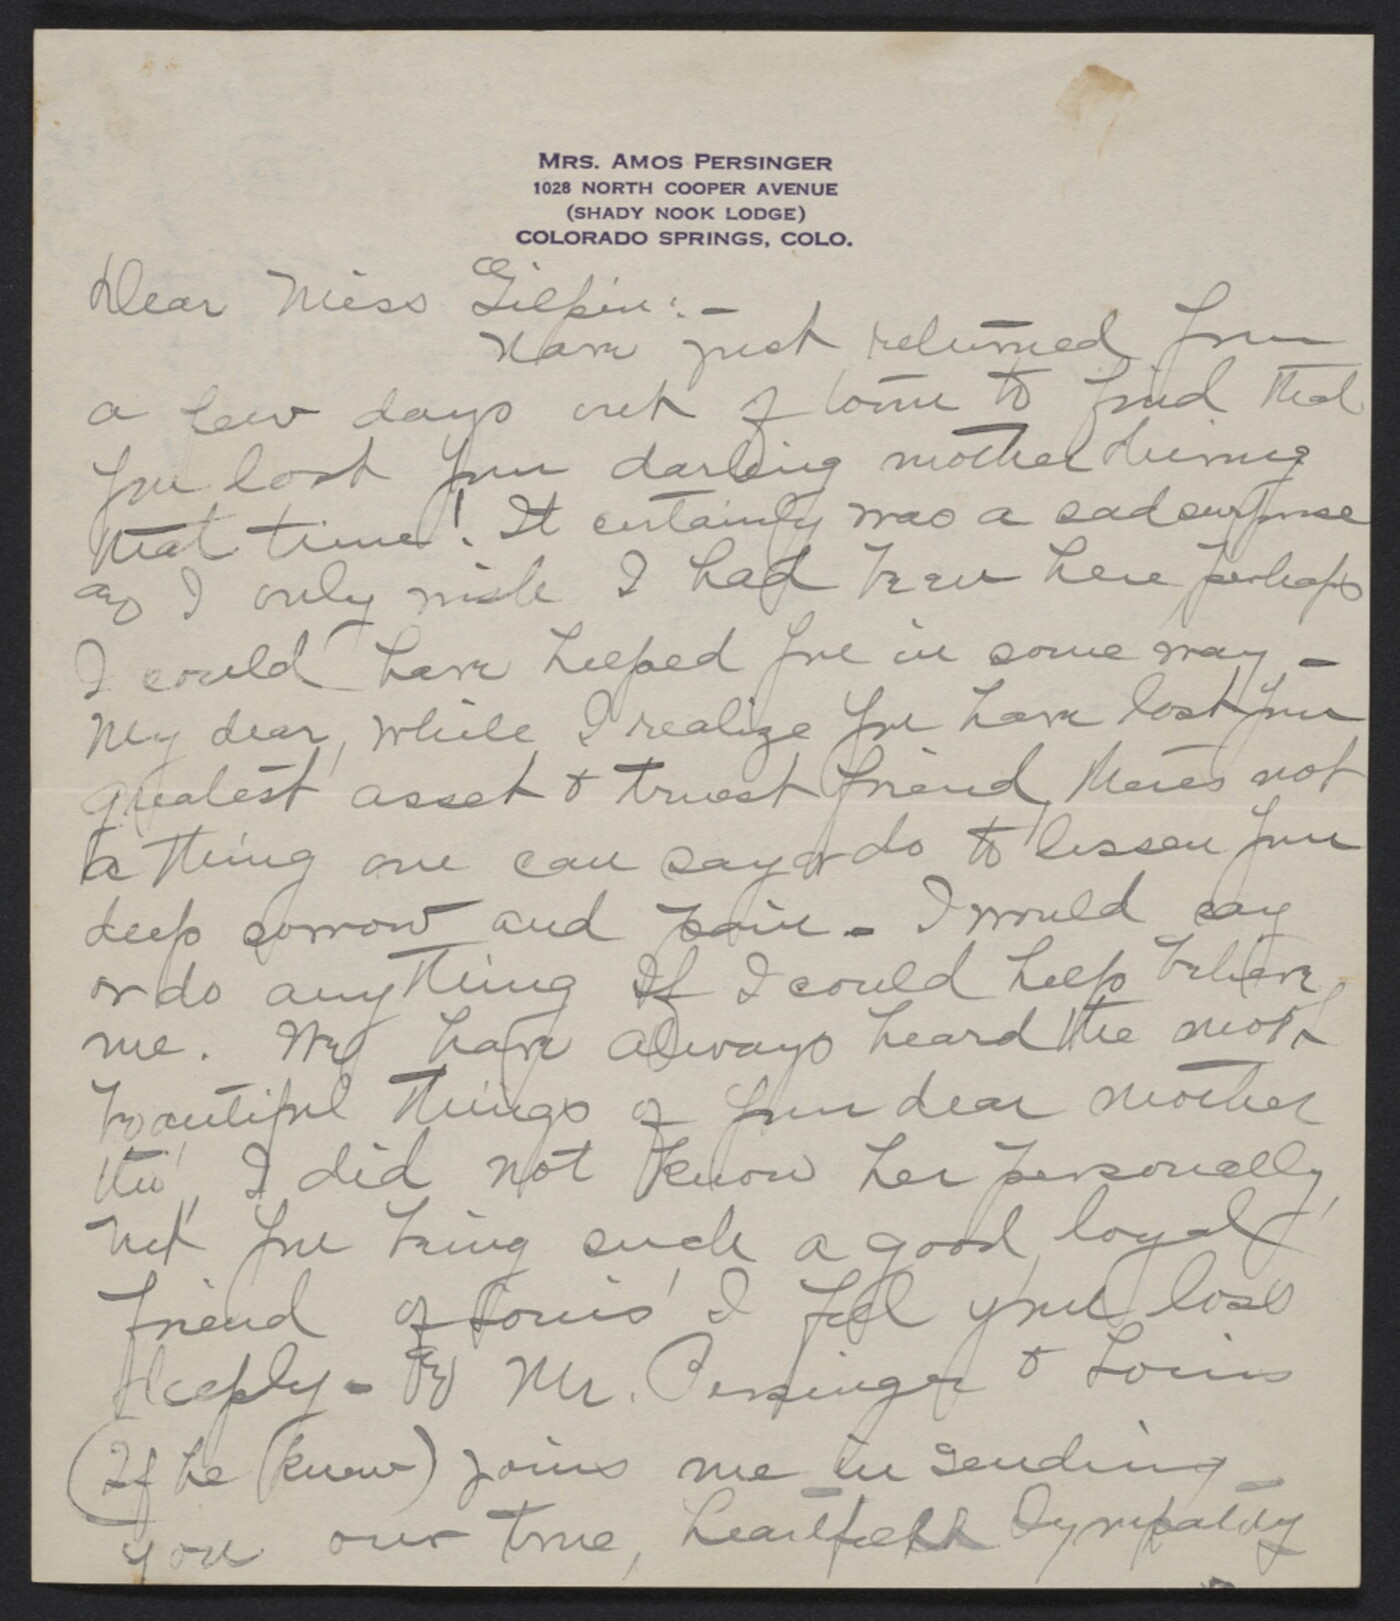 MRS. AMOS PERSINGER
1028 NORTH COOPER AVENUE
(SHADY NOOK LODGE)
COLORADO SPRINGS, COLO.
Dear Miss Gilpin:-
Have just returned from
a few days out of town to find that
you lost your darling mother during
that time! It certainly was a sad surprise
as I only wish I had been here perhaps
I could have helped you in some way -
My dear, while I realize you have lost your
greatest asset & truest friend, there's not
a thing one can say or do to lessen your
deep sorrow and pain - I would say
or do anything If I could help believe
me. We have always heard the most
beautiful things of your dear mother
tho', I did not know her personally,
but you being such a good, loyal
friend of Louis' I feel your loss
deeply - Mr. Persinger & Louis
(If he knew) joins me in sending
you our true, heartfelt Sympathy